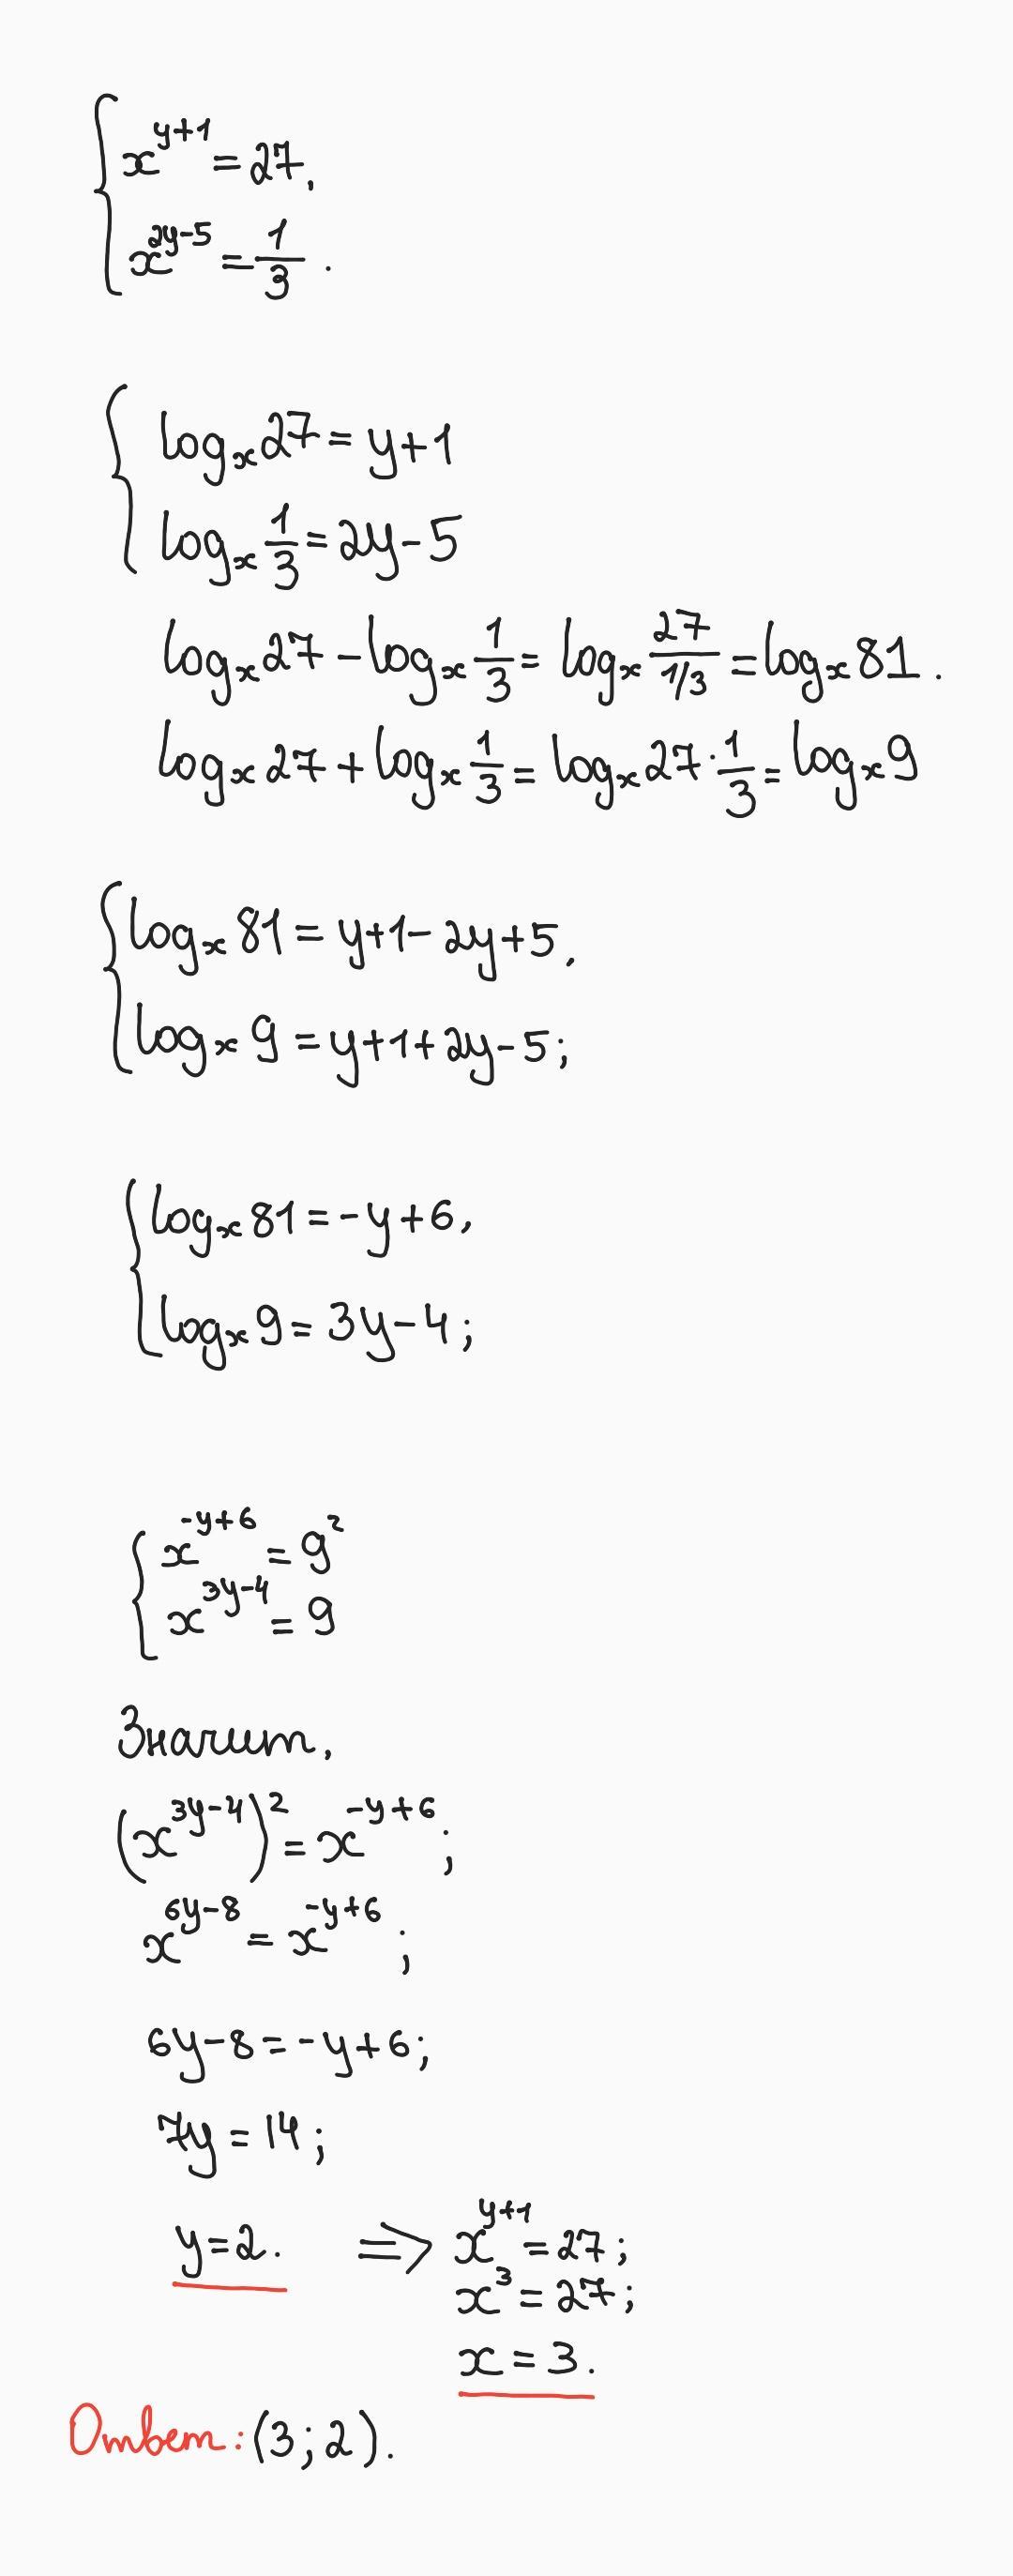 x^{y+1} = 27,
x^{2y-5} = \frac{1}{3}.
log_x 27 = y+1
log_x \frac{1}{3} = 2y-5
log_x 27 - log_x \frac{1}{3} = log_x \frac{27}{1/3} = log_x 81.
log_x 27 + log_x \frac{1}{3} = log_x 27 · \frac{1}{3} = log_x 9
log_x 81 = y+1-2y+5,
log_x 9 = y+1+2y-5;
log_x 81 = -y+6,
log_x 9 = 3y-4;
x^{-y+6} = 9^2
x^{3y-4} = 9
Значит,
(x^{3y-4})^2 = x^{-y+6};
x^{6y-8} = x^{-y+6};
6y-8 = -y+6;
7y = 14;
y = 2. => x^{y+1} = 27;
x^3 = 27;
x = 3.
Ответ: (3; 2).